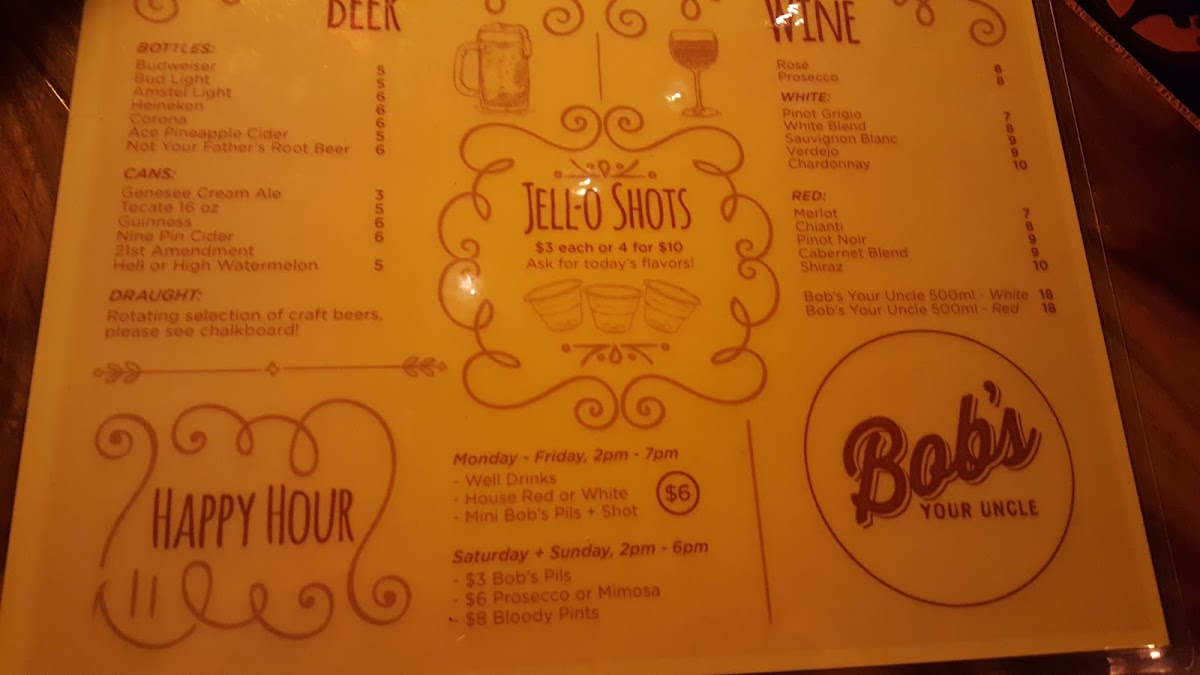 BEER
BOTTLES:
Budweiser 5
Bud Light 5
Amstel Light 6
Heineken 6
Corona 6
Ace Pineapple Cider 5
Not Your Father's Root Beer 6
CANS:
Genesee Cream Ale 3
Tecate 16 oz 5
Guinness 6
Nine Pin Cider 6
21st Amendment
Hell or High Watermelon 5
DRAUGHT:
Rotating selection of craft beers,
please see chalkboard!
JELL-O SHOTS
$3 each or 4 for $10
Ask for today's flavors!
WINE
Rosé 8
Prosecco 8
WHITE:
Pinot Grigio 7
White Blend 8
Sauvignon Blanc 9
Verdejo 9
Chardonnay 10
RED:
Merlot 7
Chianti 8
Pinot Noir 9
Cabernet Blend 9
Shiraz 10
Bob's Your Uncle 500ml - White 18
Bob's Your Uncle 500ml - Red 18
HAPPY HOUR
Monday - Friday, 2pm - 7pm
- Well Drinks
- House Red or White
- Mini Bob's Pils + Shot
$6
Saturday + Sunday, 2pm - 6pm
- $3 Bob's Pils
- $6 Prosecco or Mimosa
- $8 Bloody Pints
Bob's
YOUR UNCLE